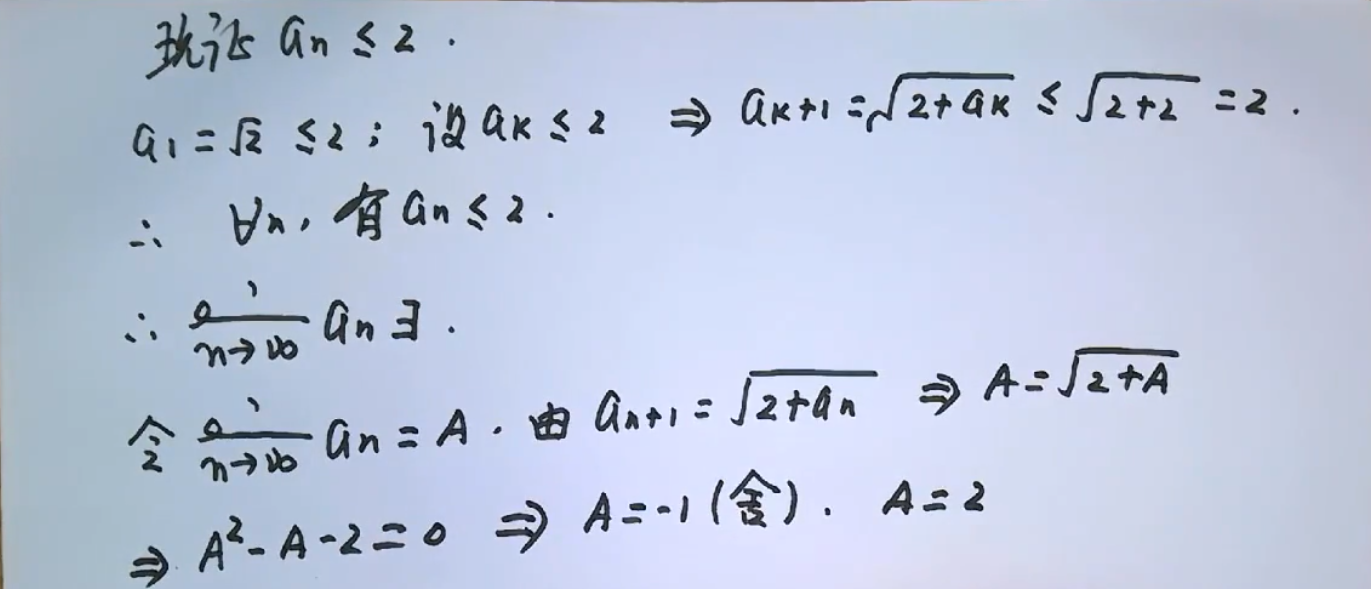 现证 aₙ ≤ 2 .
a₁ = √2 ≤ 2 ; 设 aₖ ≤ 2 ⇒ aₖ₊₁ = √(2+aₖ) ≤ √(2+2) = 2 .
∴ ∀n, 有 aₙ ≤ 2 .
∴ lim n→∞ aₙ ∃ .
令 lim n→∞ aₙ = A . 由 aₙ₊₁ = √(2+aₙ) ⇒ A = √(2+A)
⇒ A² - A - 2 = 0 ⇒ A = -1 (舍) . A = 2